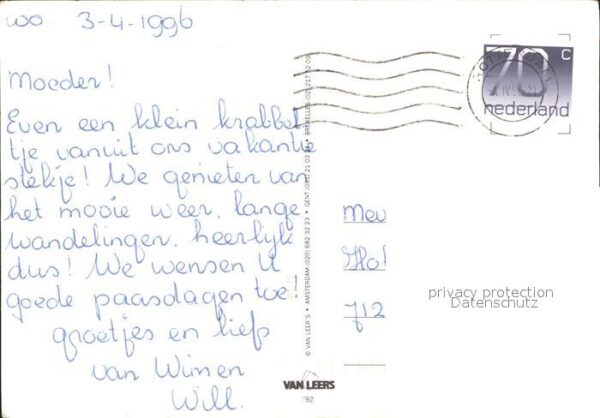 wo 3-4-1996
Moeder!
Even een klein krabbel
tje vanuit ons vakantie
stekje! We genieten van
het mooie weer, lange
wandelingen, heerlijk
dus! We wensen U
goede paasdagen toe
groetjes en liefs
van Wim en
Will.
© VAN LEER'S • AMSTERDAM (020) 682 32 23 • GENT
VAN LEERS
'92
70 c
nederland
Mev
712
privacy protection
Datenschutz